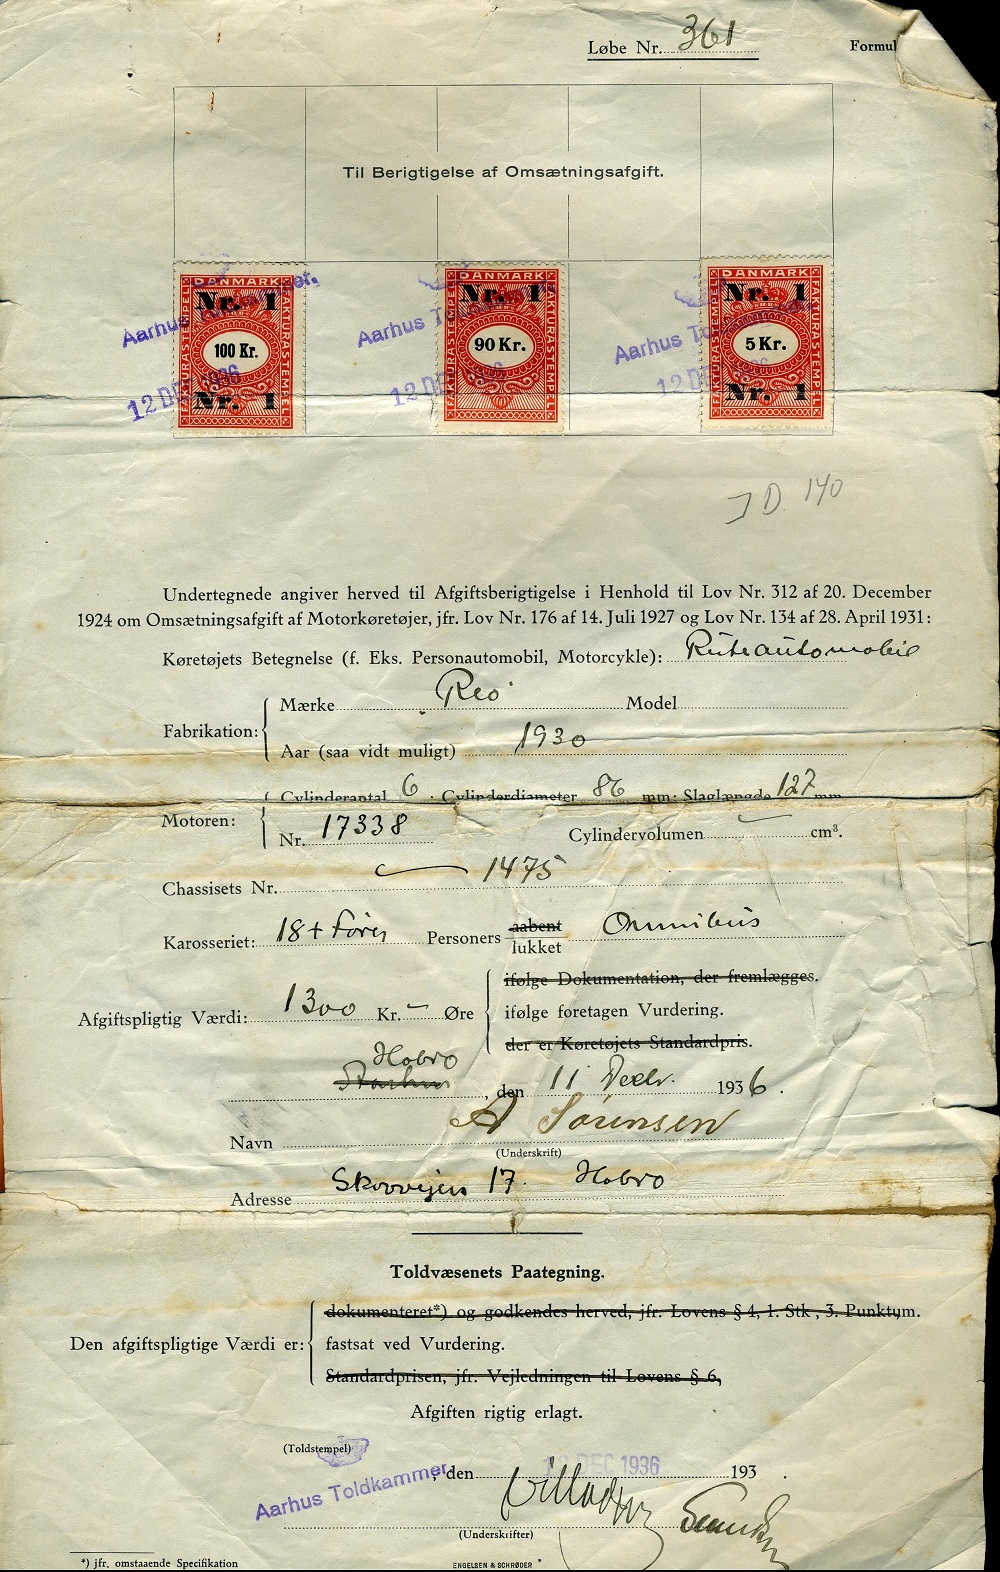 Løbe Nr. 361
Formul
Til Berigtigelse af Omsætningsafgift.
DANMARK
FAKTURASTEMPEL
Nr. 1
100 Kr.
Nr. 1
DANMARK
FAKTURASTEMPEL
Nr. 1
90 Kr.
DANMARK
FAKTURASTEMPEL
Nr. 1
5 Kr.
Nr. 1
Aarhus
12 DEC 1936
Aarhus
12 DE
Aarhus
12 D
D 140
Undertegnede angiver herved til Afgiftsberigtigelse i Henhold til Lov Nr. 312 af 20. December
1924 om Omsætningsafgift af Motorkøretøjer, jfr. Lov Nr. 176 af 14. Juli 1927 og Lov Nr. 134 af 28. April 1931:
Køretøjets Betegnelse (f. Eks. Personautomobil, Motorcykle): Ruteautomobil
Fabrikation: Mærke Reo Model
Aar (saa vidt muligt) 1930
Cylinderantal 6 . Cylinderdiameter 86 mm: Slaglængde 127 mm
Motoren:
Nr. 17338 Cylindervolumen – cm³.
Chassisets Nr. 1475
Karosseriet: 18 + Fører Personers aabent lukket Omnibus
ifølge Dokumentation, der fremlægges.
Afgiftspligtig Værdi: 1300 Kr. – Øre ifølge foretagen Vurdering.
der er Køretøjets Standardpris.
Hobro
Aarhus, den 11 Decbr. 1936.
Navn A Sørensen
(Underskrift)
Adresse Skovvejen 17. Hobro
Toldvæsenets Paategning.
dokumenteret*) og godkendes herved, jfr. Lovens § 4, 1. Stk., 3. Punktum.
Den afgiftspligtige Værdi er: fastsat ved Vurdering.
Standardprisen, jfr. Vejledningen til Lovens § 6,
Afgiften rigtig erlagt.
(Toldstempel)
Aarhus Toldkammer, den 12 DEC 1936 193 .
(Underskrifter)
*) jfr. omstaaende Specifikation
ENGELSEN & SCHRØDER *